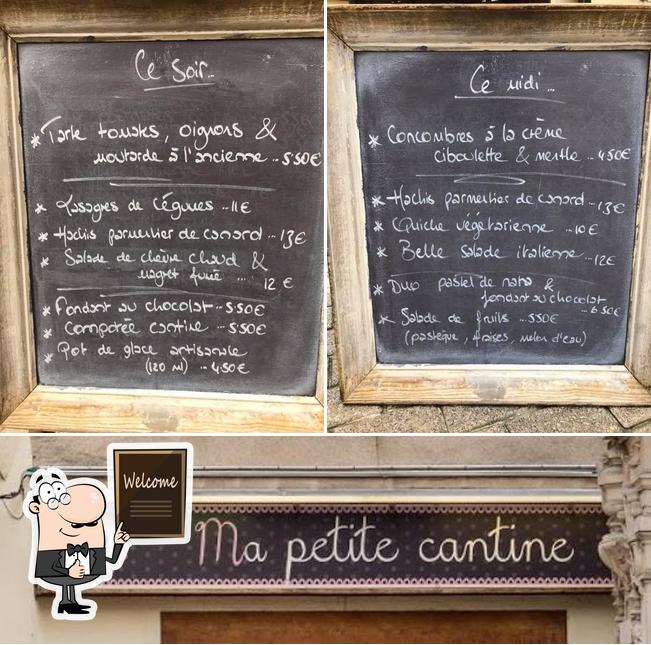 Ce soir...
* Tarte tomates, oignons &
moutarde à l'ancienne ... 5.50€
* Lasagnes de légumes ... 11€
* Hachis parmentier de canard ... 13€
* Salade de chèvre chaud &
magret fumé ... 12 €
* Fondant au chocolat ... 5.50€
* Compotée cantine ... 5.50€
* Pot de glace artisanale
(120 ml) ... 4.50€
Ce midi...
* Concombres à la crème
ciboulette & menthe ... 4.50€
* Hachis parmentier de canard ... 13€
* Quiche végétarienne ... 10€
* Belle salade italienne ... 12€
* Duo pastel de nata &
fondant au chocolat
... 6.50€
* Salade de fruits ... 5.50€
(pastèque, fraises, melon d'eau)
Welcome
Ma petite cantine